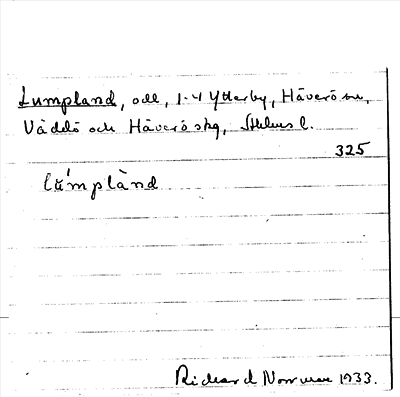 Lumpland, odl, 1-4 Ytterby, Häverö sn,
Väddö och Häverö skg, Sthlms l.
325
lu̇́mplànd
Richard Norrman 1933.